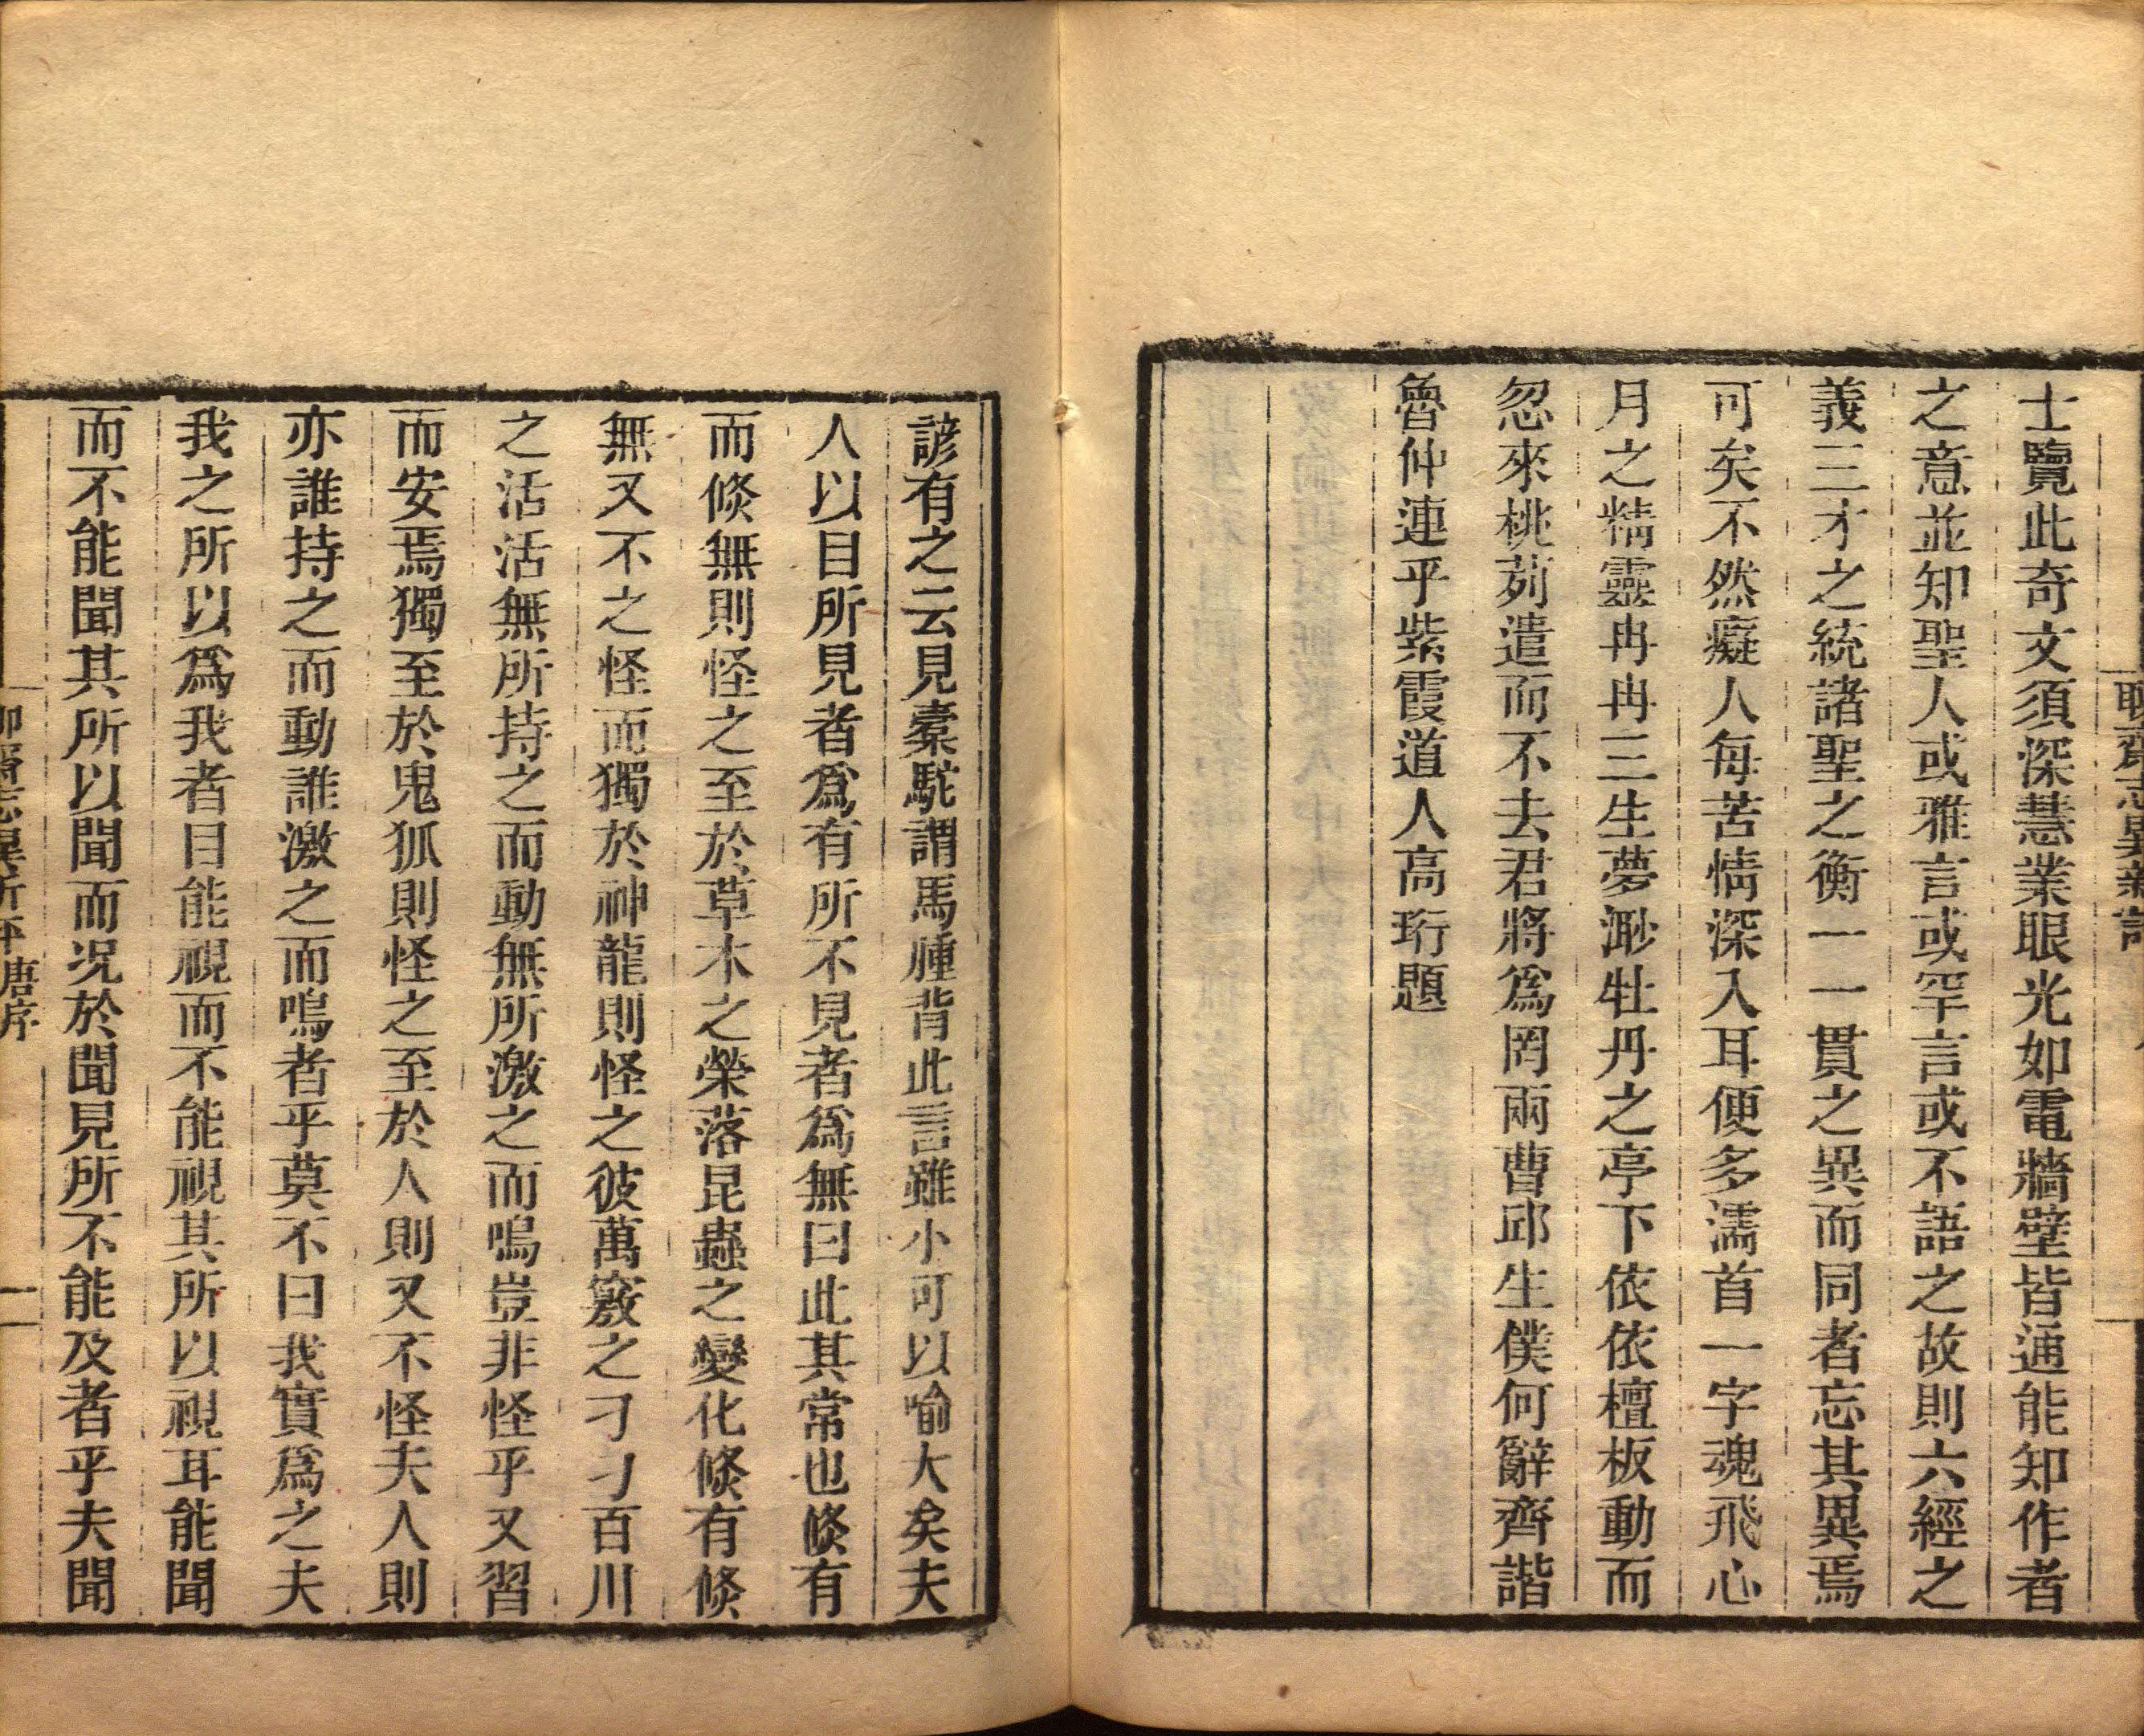 聊齋志異新評
士覽此奇文須深慧業眼光如電牆壁皆通能知作者
之意並知聖人或雅言或罕言或不語之故則六經之
義三才之統諸聖之衡一一貫之異而同者忘其異焉
可矣不然癡人每苦情深入耳便多濡首一字魂飛心
月之精靈冉冉三生夢渺牡丹之亭下依依檀板動而
忽來桃茢遣而不去君將爲罔兩曹邱生僕何辭齊諧
魯仲連乎紫霞道人高珩題
諺有之云見橐駝謂馬腫背此言雖小可以喻大矣夫
人以目所見者爲有所不見者爲無曰此其常也倏有
而倏無則怪之至於草木之榮落昆蟲之變化倏有倏
無又不之怪而獨於神龍則怪之彼萬竅之刁刁百川
之活活無所持之而動無所激之而鳴豈非怪乎又習
而安焉獨至於鬼狐則怪之至於人則又不怪夫人則
亦誰持之而動誰激之而鳴者乎莫不曰我實爲之夫
我之所以爲我者目能視而不能視其所以視耳能聞
而不能聞其所以聞而况於聞見所不能及者乎夫聞
聊齋志異新評 唐序 一